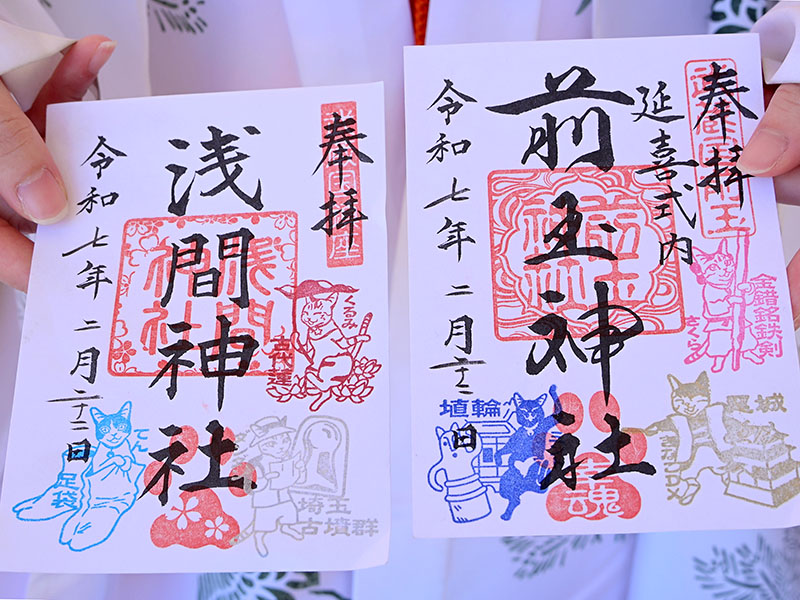 奉拝
浅間神社
令和七年二月二十二日
浅間神社
くるみ
古代蓮
てん
足袋
埼玉
古墳群
奉拝
延喜式内
前玉神社
令和七年二月二十二日
前玉神社
金錯銘鉄剣
さくら
埴輪
幸魂